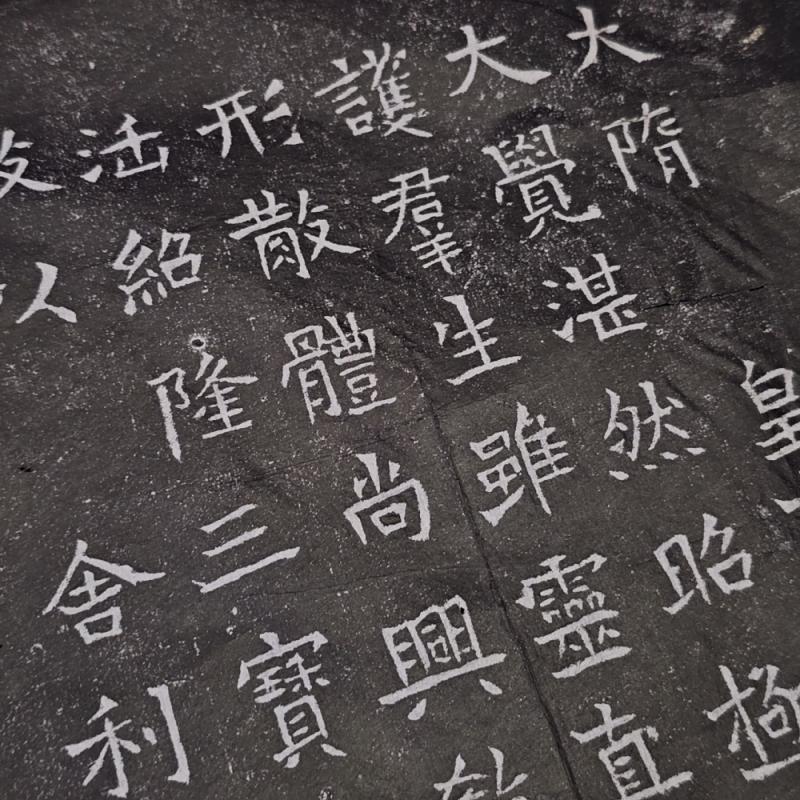 大隋皇
大覺湛然昭極
護羣生雖靈直
形散體尚興
紹隆三寶
以舍利